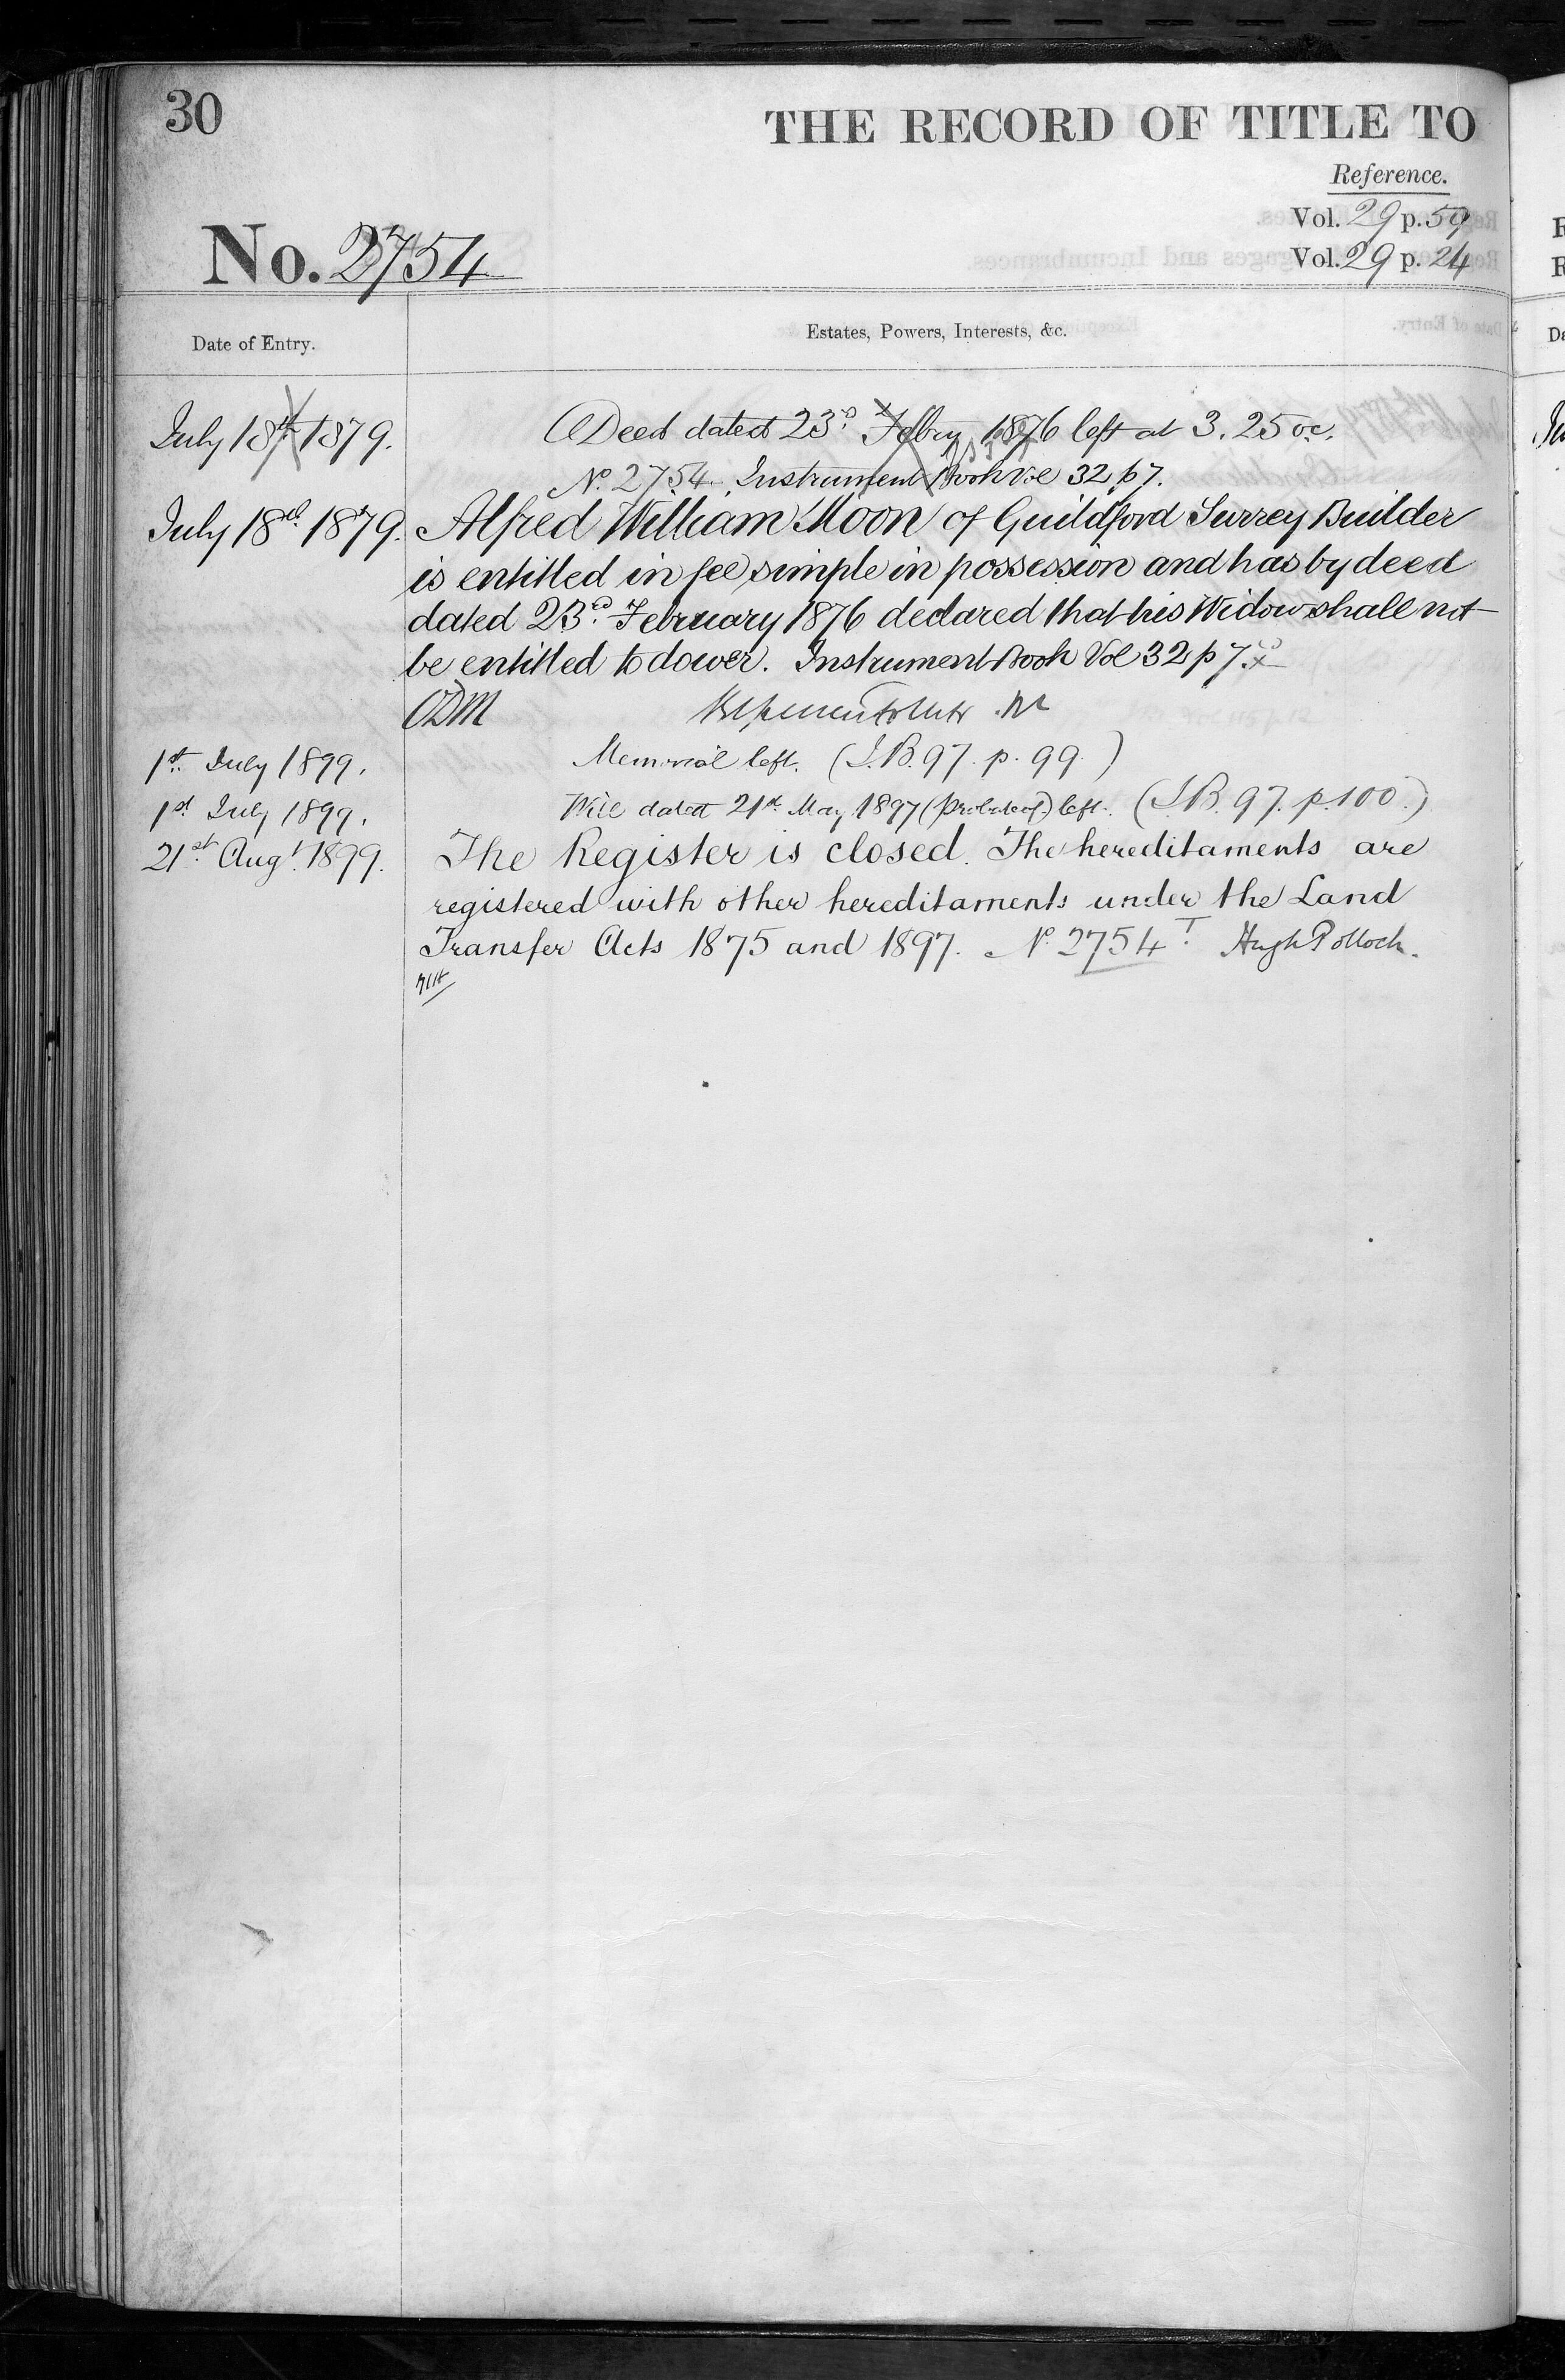 30
THE RECORD OF TITLE TO
Reference.
Vol. 29 p. 59
No. 2754
Vol. 29 p. 24
Date of Entry.
Estates, Powers, Interests, &c.
July 18th 1879.
Deed dated 23d. Febry 1876 left at 3.25 oc.
No. 2754 Instrument Book Vol 32 p 7.
July 18th 1879.
Alfred William Moon of Guildford Surrey Builder
is entitled in fee simple in possession and has by deed
dated 23rd. February 1876 declared that his Widow shall not
be entitled to dower. Instrument Book Vol 32 p 7.
1st. July 1899.
Memorial left. (I.B. 97. p. 99.)
1st July 1899.
Will dated 21st. May 1897 (Probate of) left. (I.B. 97. p. 100.)
21st. Augt. 1899.
The Register is closed. The hereditaments are
registered with other hereditaments under the Land
Transfer Acts 1875 and 1897. No. 2754 T. Hugh Pollock.